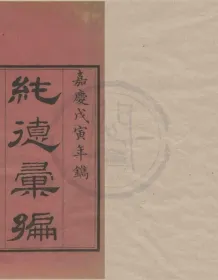 嘉慶戊寅年鐫
純德彙編